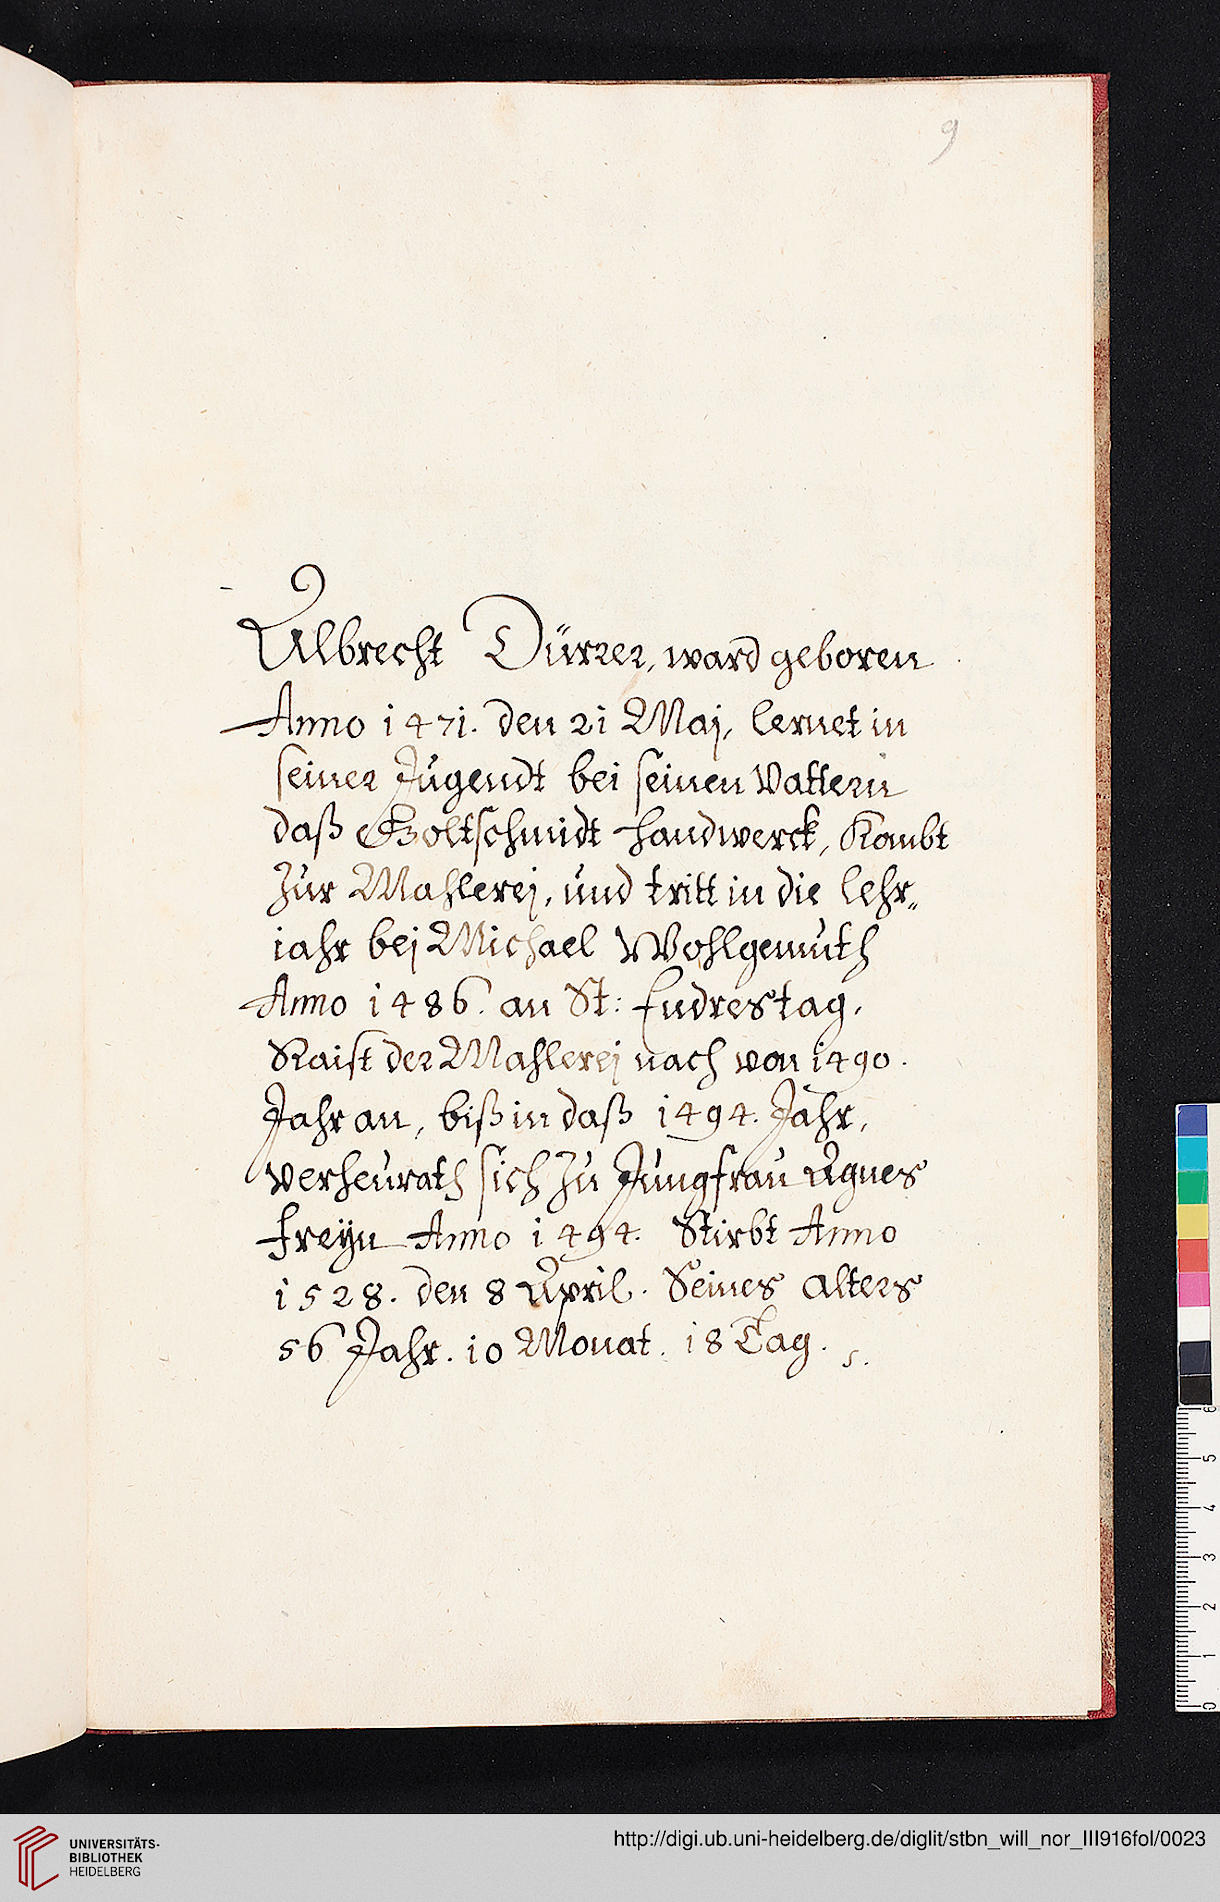 9
Albrecht Dürrer, ward geboren
Anno 1471. den 21 Maj, lernet in
seiner Jugendt bei seinen Vattern
daß Goltschmidt handwerck, Kombt
Zur Mahlerej, und tritt in die lehr„
iahr bej Michael Wohlgemuth
Anno 1486. an St: Endrestag,
Raist der Mahlerej nach von 1490.
Jahr an, biß in daß 1494. Jahr,
verheurath sich Zu Jungfrau Agnes
Freyn Anno 1494. Stirbt Anno
1528. den 8 April. Seines alters
56 Jahr. 10 Monat. 18 Tag.
5.
6
5
4
3
2
1
0
UNIVERSITÄTS-
BIBLIOTHEK
HEIDELBERG
http://digi.ub.uni-heidelberg.de/diglit/stbn_will_nor_III916fol/0023